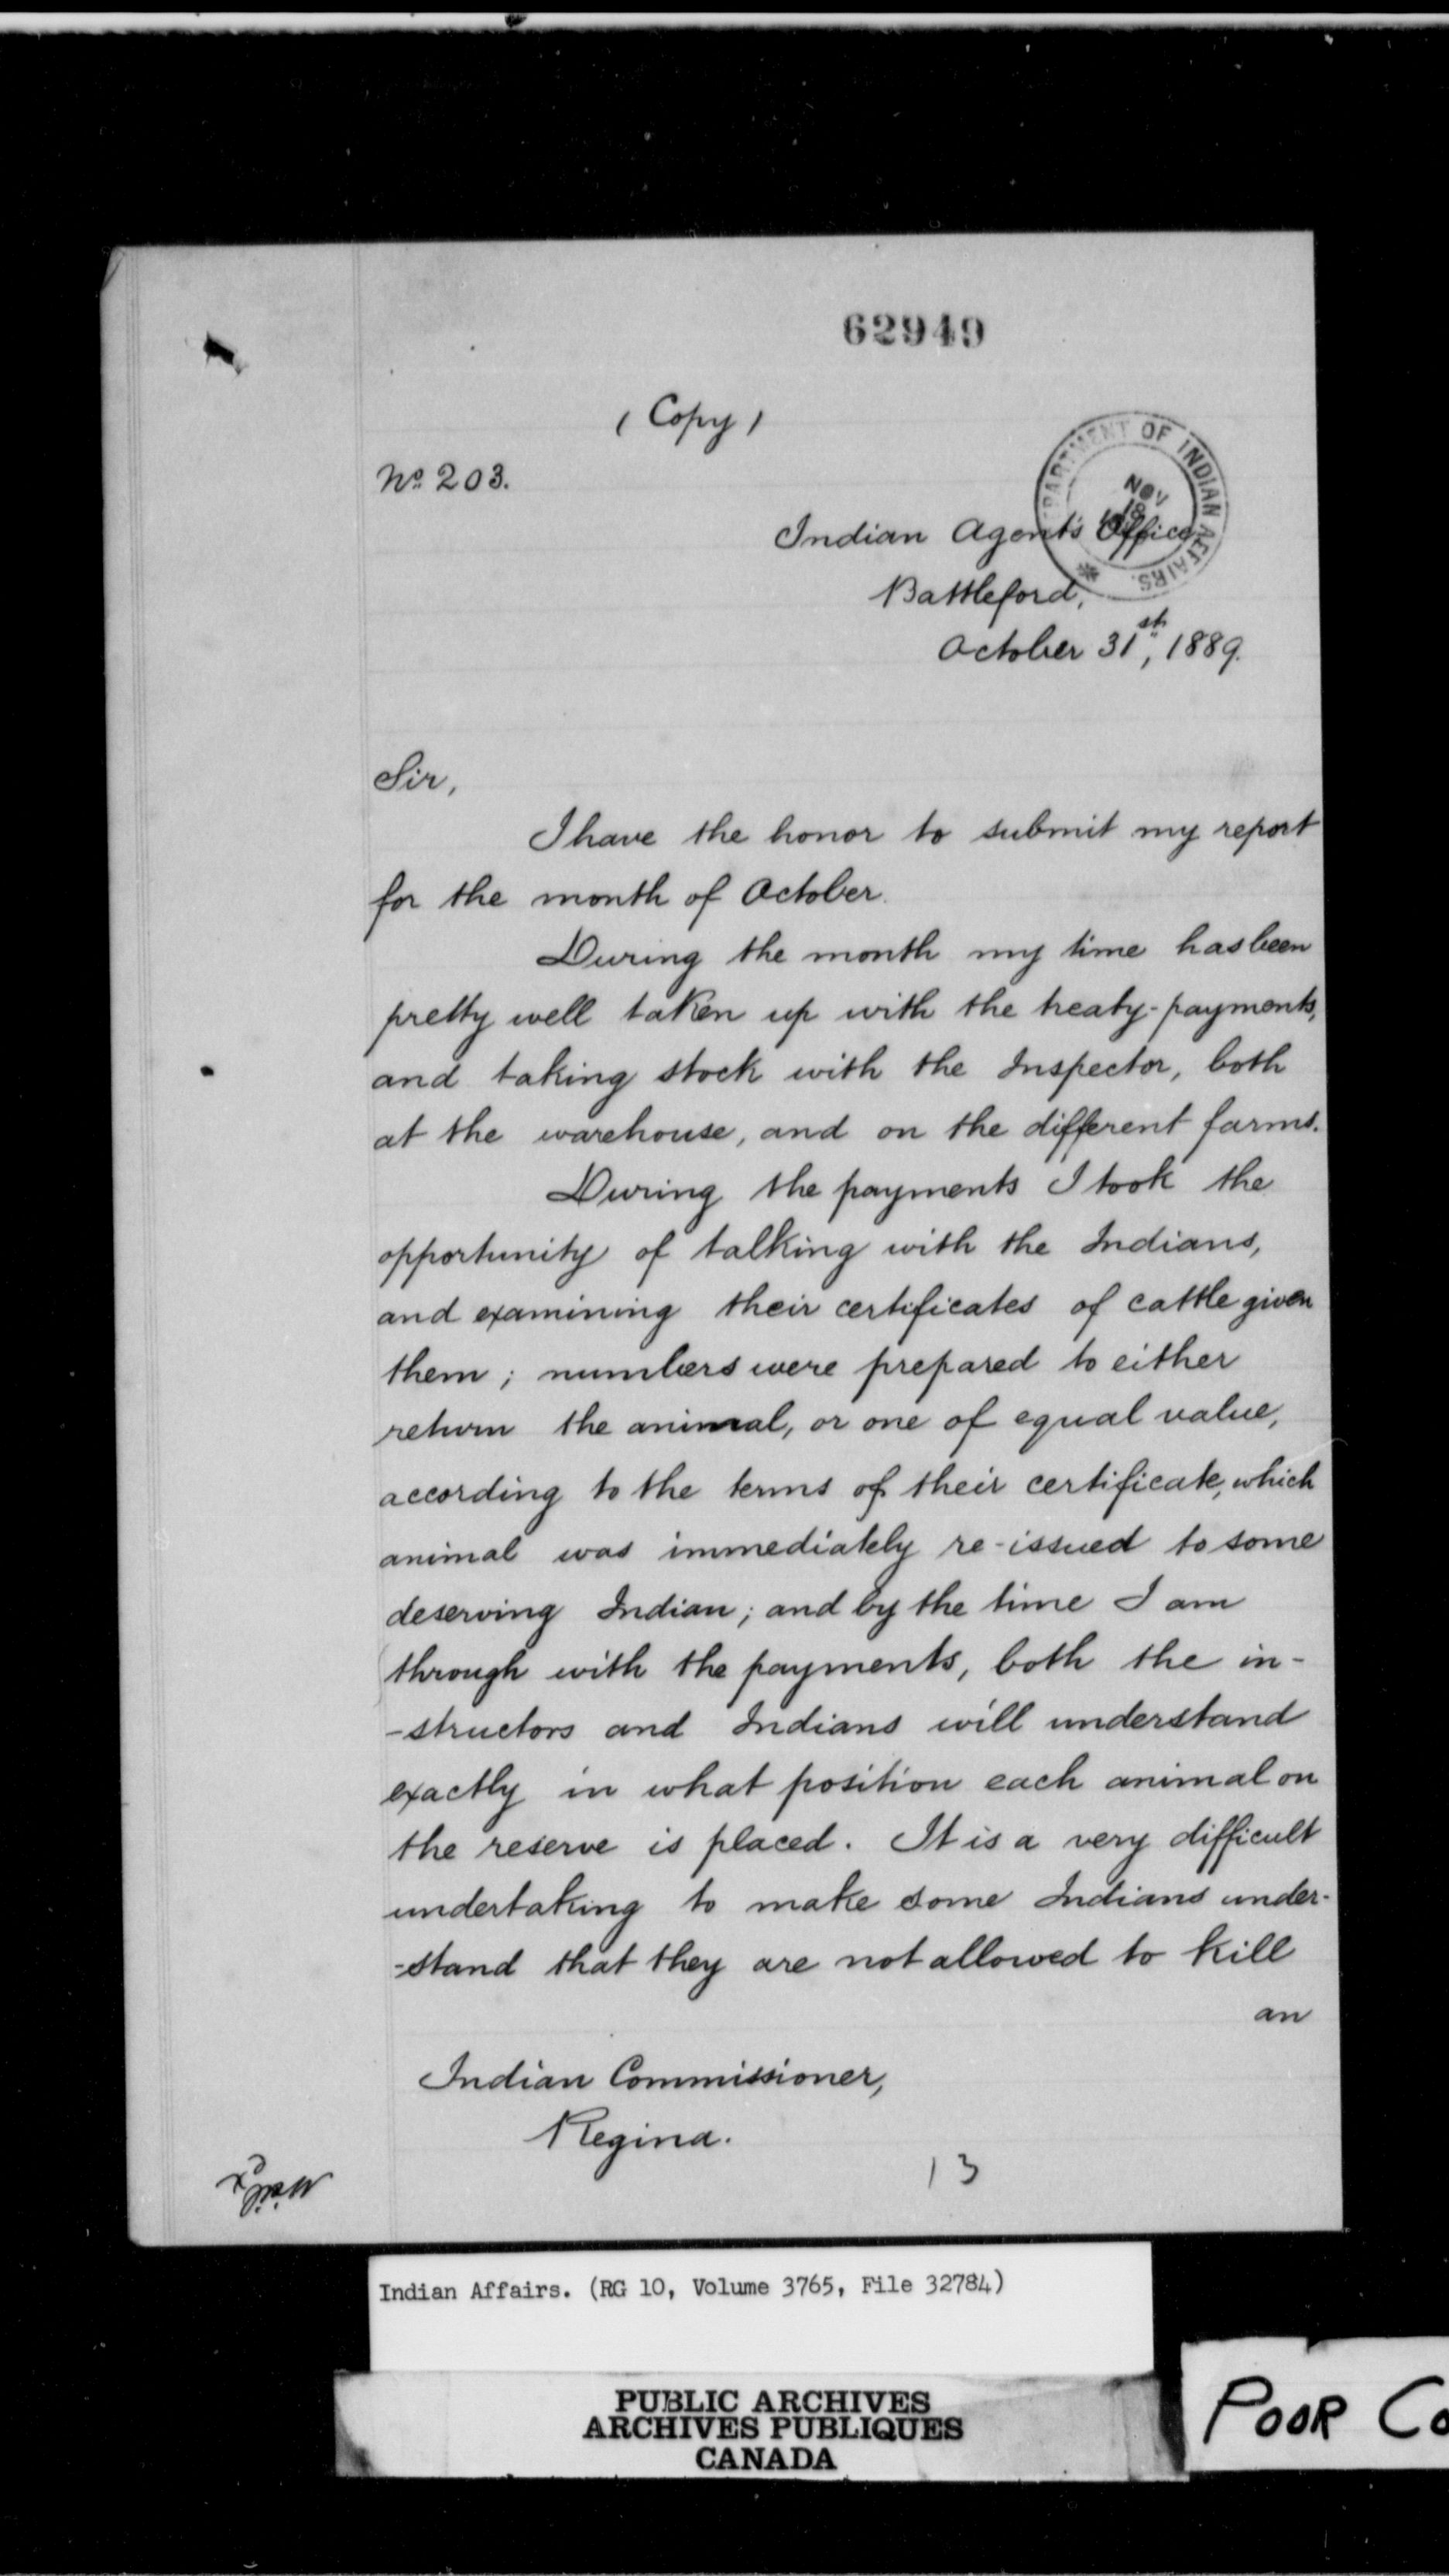 62949
(Copy)
No. 203.
DEPARTMENT OF INDIAN AFFAIRS.
NOV
18
Indian Agent's Office,
Battleford,
October 31st, 1889.
Sir,
I have the honor to submit my report
for the month of October.
During the month my time has been
pretty well taken up with the treaty-payments,
and taking stock with the Inspector, both
at the warehouse, and on the different farms.
During the payments I took the
opportunity of talking with the Indians,
and examining their certificates of cattle given
them; numbers were prepared to either
return the animal, or one of equal value,
according to the terms of their certificate, which
animal was immediately re-issued to some
deserving Indian; and by the time I am
through with the payments, both the in-
-structors and Indians will understand
exactly in what position each animal on
the reserve is placed. It is a very difficult
undertaking to make some Indians under-
-stand that they are not allowed to kill
an
Indian Commissioner,
Regina.
13
Indian Affairs. (RG 10, Volume 3765, File 32784)
PUBLIC ARCHIVES
ARCHIVES PUBLIQUES
CANADA
POOR Co